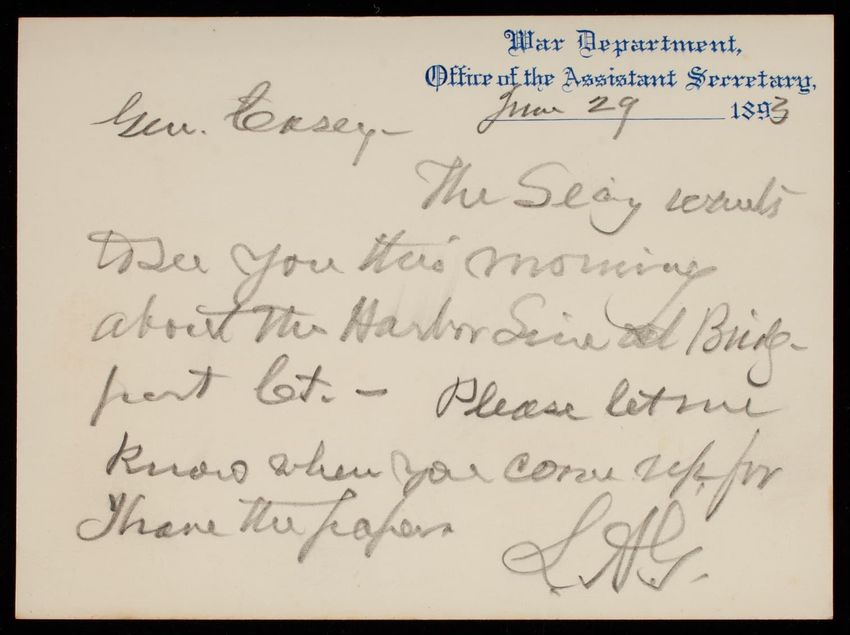 War Department,
Office of the Assistant Secretary,
June 29 1893
Gen. Casey –
The Secy wants
to see you this morning
about the Harbor Line at Bridge-
port Ct. – Please let me
know when you come up, for
I have the papers
L.A.G.